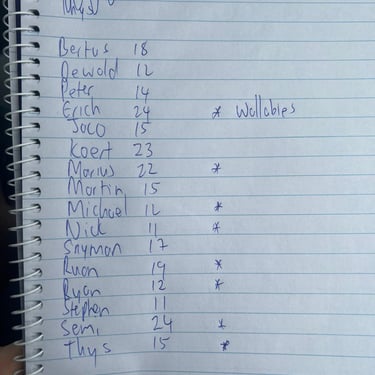 Thys)
Bertus 18
Dewald 12
Peter 14
Erich 24 * Wallabies
Jaco 15
Koert 23
Marius 22 *
Martin 15
Michael 12 *
Nick 11 *
Snyman 17
Ruan 19 *
Ryan 12 *
Stephen 11
Semi 24 *
Thys 15 *